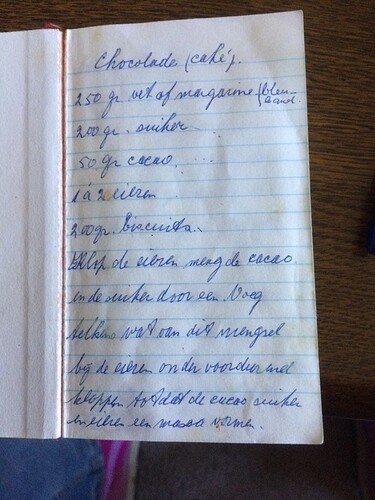 Chocolade (cake).
250 gr. vet of margarine (bleu-
band.
200 gr. suiker
50 gr cacao. ...
1 à 2 eieren
200 gr. biscuits.
Klop de eieren meng de cacao.
en de suiker door een. Voeg
telkens wat van dit mengsel
bij de eieren onder voordurend
kloppen totdat de cacao suiker
en eieren een massa vormen.